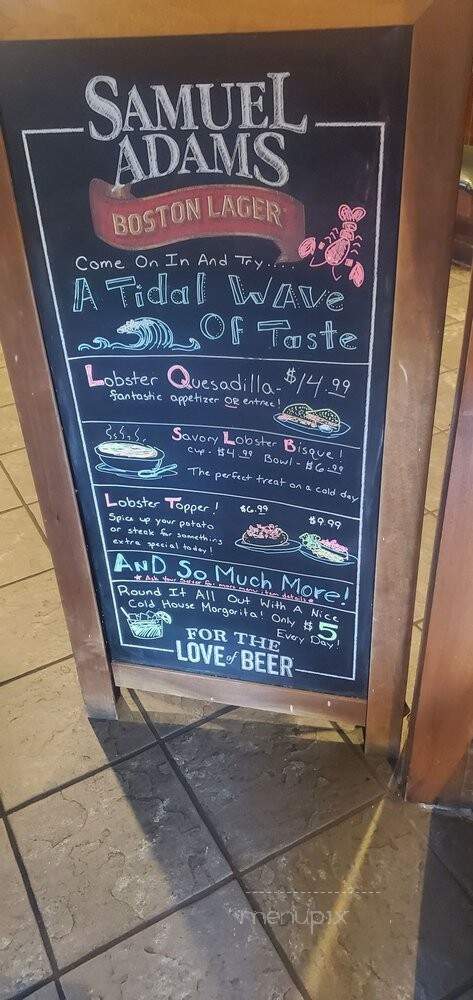 SAMUEL
ADAMS
BOSTON LAGER
Come On In And Try....
A Tidal WAVe
OF Taste
Lobster Quesadilla - $14.99
fantastic appetizer OR entree!
Savory Lobster Bisque!
Cup - $4.99 Bowl - $6.99
The perfect treat on a cold day
Lobster Topper! $6.99 $9.99
Spice up your potato
or steak for something
extra special today!
AND So Much More!
* Ask Your Server for more menu item details *
Round It All Out With A Nice
Cold House Margarita! Only $5
Every Day!
FOR THE
LOVE of BEER
menupix